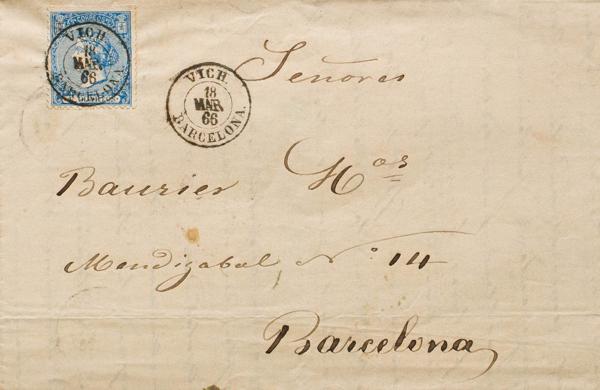 VICH
18
MAR
66
BARCELONA.
VICH
18
MAR
66
BARCELONA.
Señores
Baurier Hos
Mendizabal Nº 14
Barcelona